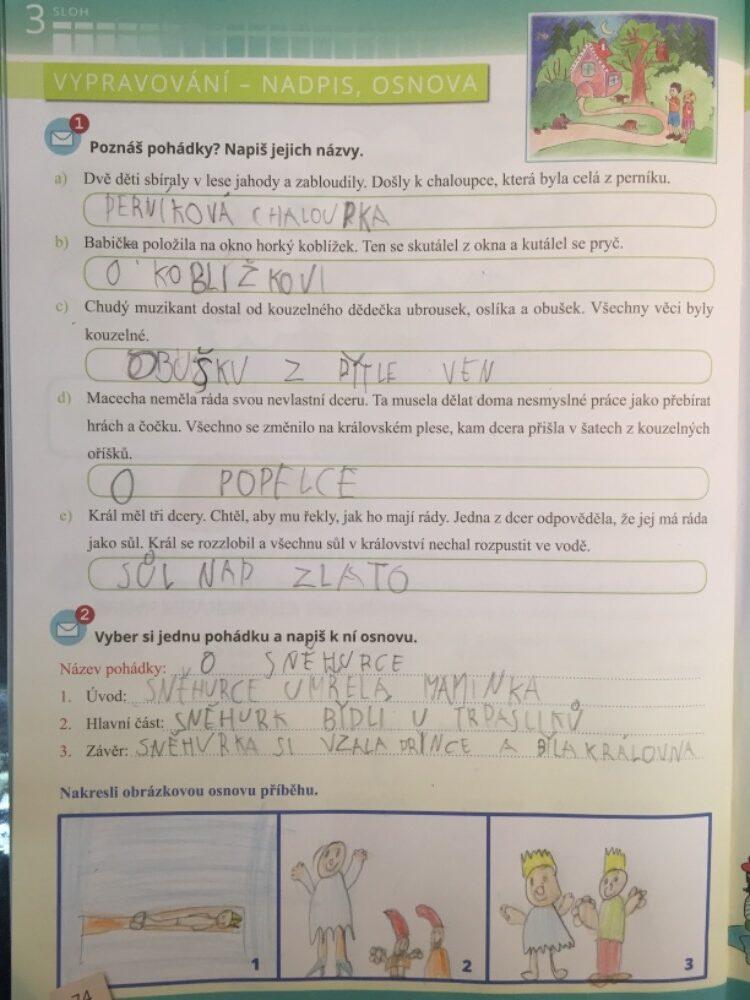 3 SLOH
VYPRAVOVÁNÍ – NADPIS, OSNOVA
1
Poznáš pohádky? Napiš jejich názvy.
a) Dvě děti sbíraly v lese jahody a zabloudily. Došly k chaloupce, která byla celá z perníku.
PERNÍKOVÁ CHALOUPKA
b) Babička položila na okno horký koblížek. Ten se skutálel z okna a kutálel se pryč.
O KOBLÍŽKOVI
c) Chudý muzikant dostal od kouzelného dědečka ubrousek, oslíka a obušek. Všechny věci byly
kouzelné.
OBUŠKU Z PYTLE VEN
d) Macecha neměla ráda svou nevlastní dceru. Ta musela dělat doma nesmyslné práce jako přebírat
hrách a čočku. Všechno se změnilo na královském plese, kam dcera přišla v šatech z kouzelných
oříšků.
O POPELCE
e) Král měl tři dcery. Chtěl, aby mu řekly, jak ho mají rády. Jedna z dcer odpověděla, že jej má ráda
jako sůl. Král se rozzlobil a všechnu sůl v království nechal rozpustit ve vodě.
SŮL NAD ZLATO
2
Vyber si jednu pohádku a napiš k ní osnovu.
Název pohádky: O SNĚHURCE
1. Úvod: SNĚHURCE UMŘELA MAMINKA
2. Hlavní část: SNĚHURK BYDLÍ U TRPASLÍKŮ
3. Závěr: SNĚHURKA SI VZALA PRINCE A BYLA KRÁLOVNA
Nakresli obrázkovou osnovu příběhu.
1 2 3
74